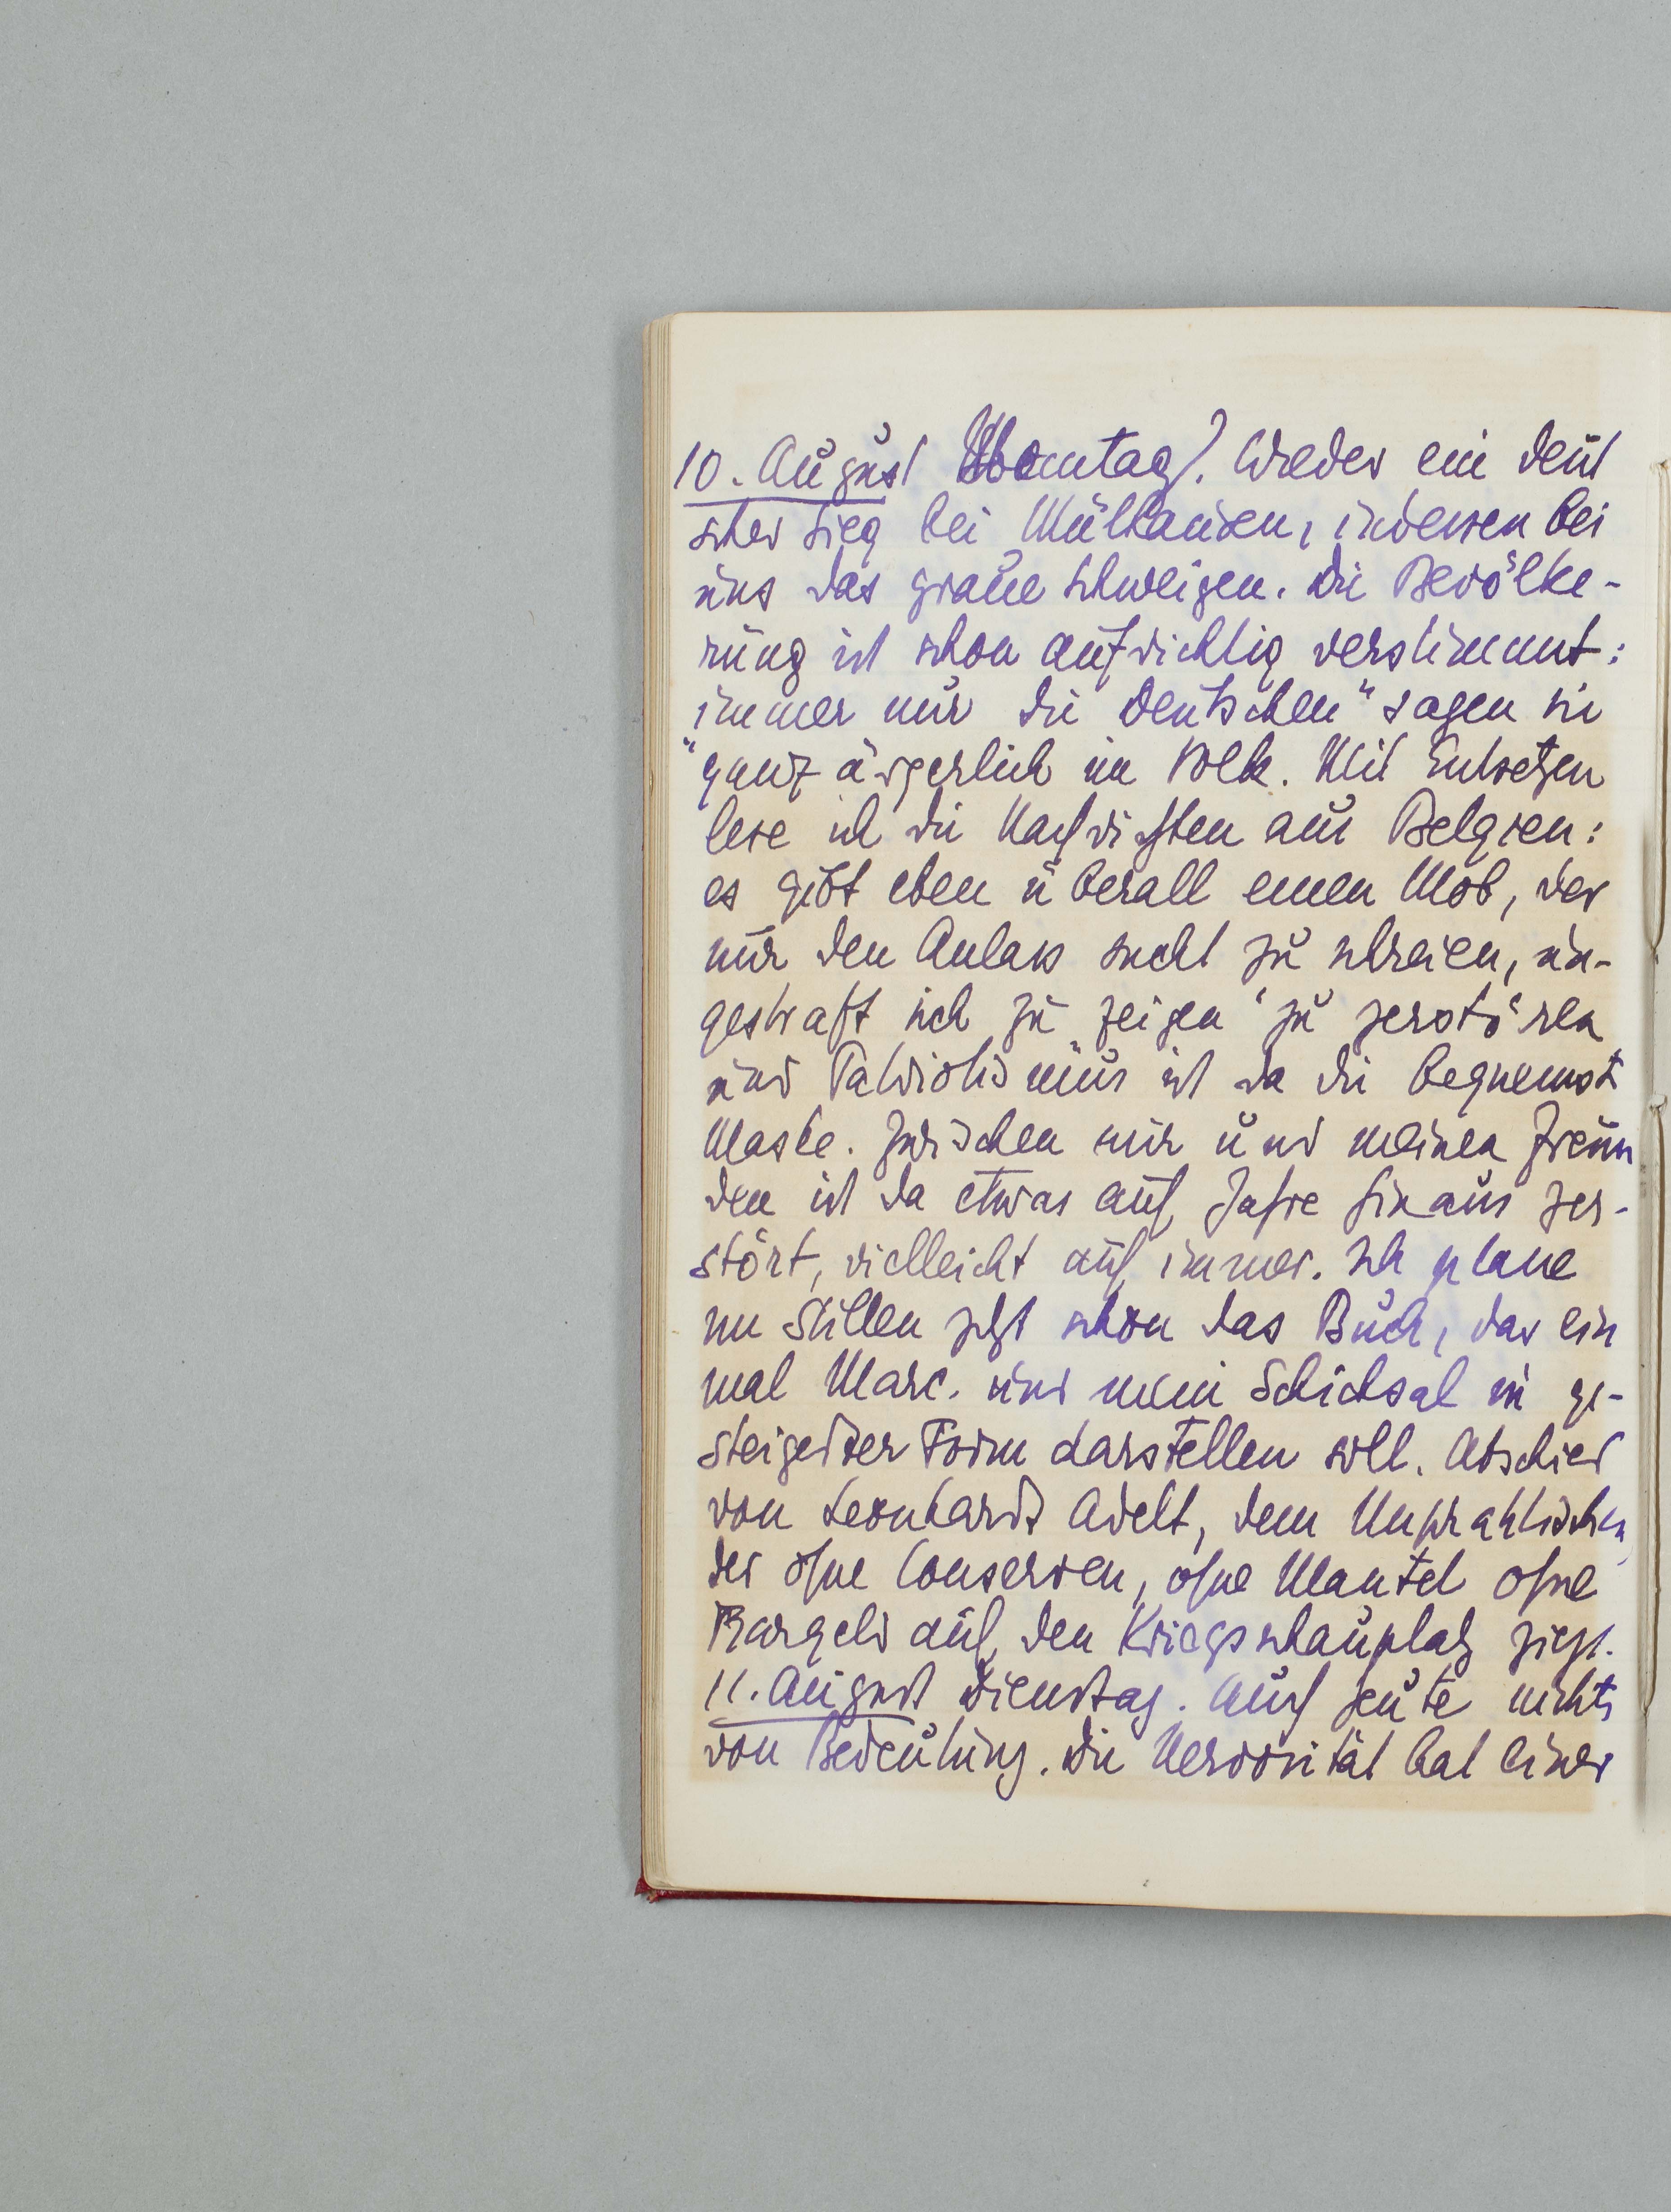 10. August Montag). Wieder ein deut
scher Sieg bei Mülhausen, indessen bei
uns das graue Schweigen. Die Bevölke-
rung ist schon aufrichtig verstimmt:
„immer nur die Deutschen" sagen sie
ganz ärgerlich im Volk. Mit Entsetzen
lese ich die Nachrichten aus Belgien:
es gibt eben überall einen Mob, der
nur den Anlass sucht zu schreien, un-
gestraft sich zu zeigen zu zerstören
und Patriotismus ist da die bequemst
Maske. Zwischen mir und meinen Freun
den ist da etwas auf Jahre hinaus zer-
stört, vielleicht auf immer. Ich plane
im Stillen jetzt schon das Buch, das ein
mal Marc. und mein Schicksal in ge-
steigerter Form darstellen soll. Abschied
von Leonhardt Adelt, dem Unprahlischen,
der ohne Conserven, ohne Mantel ohne
Bargeld auf den Kriegsschauplatz zieht.
11. August Dienstag. Auch heute nichts
von Bedeutung. Die Nervosität hat einer